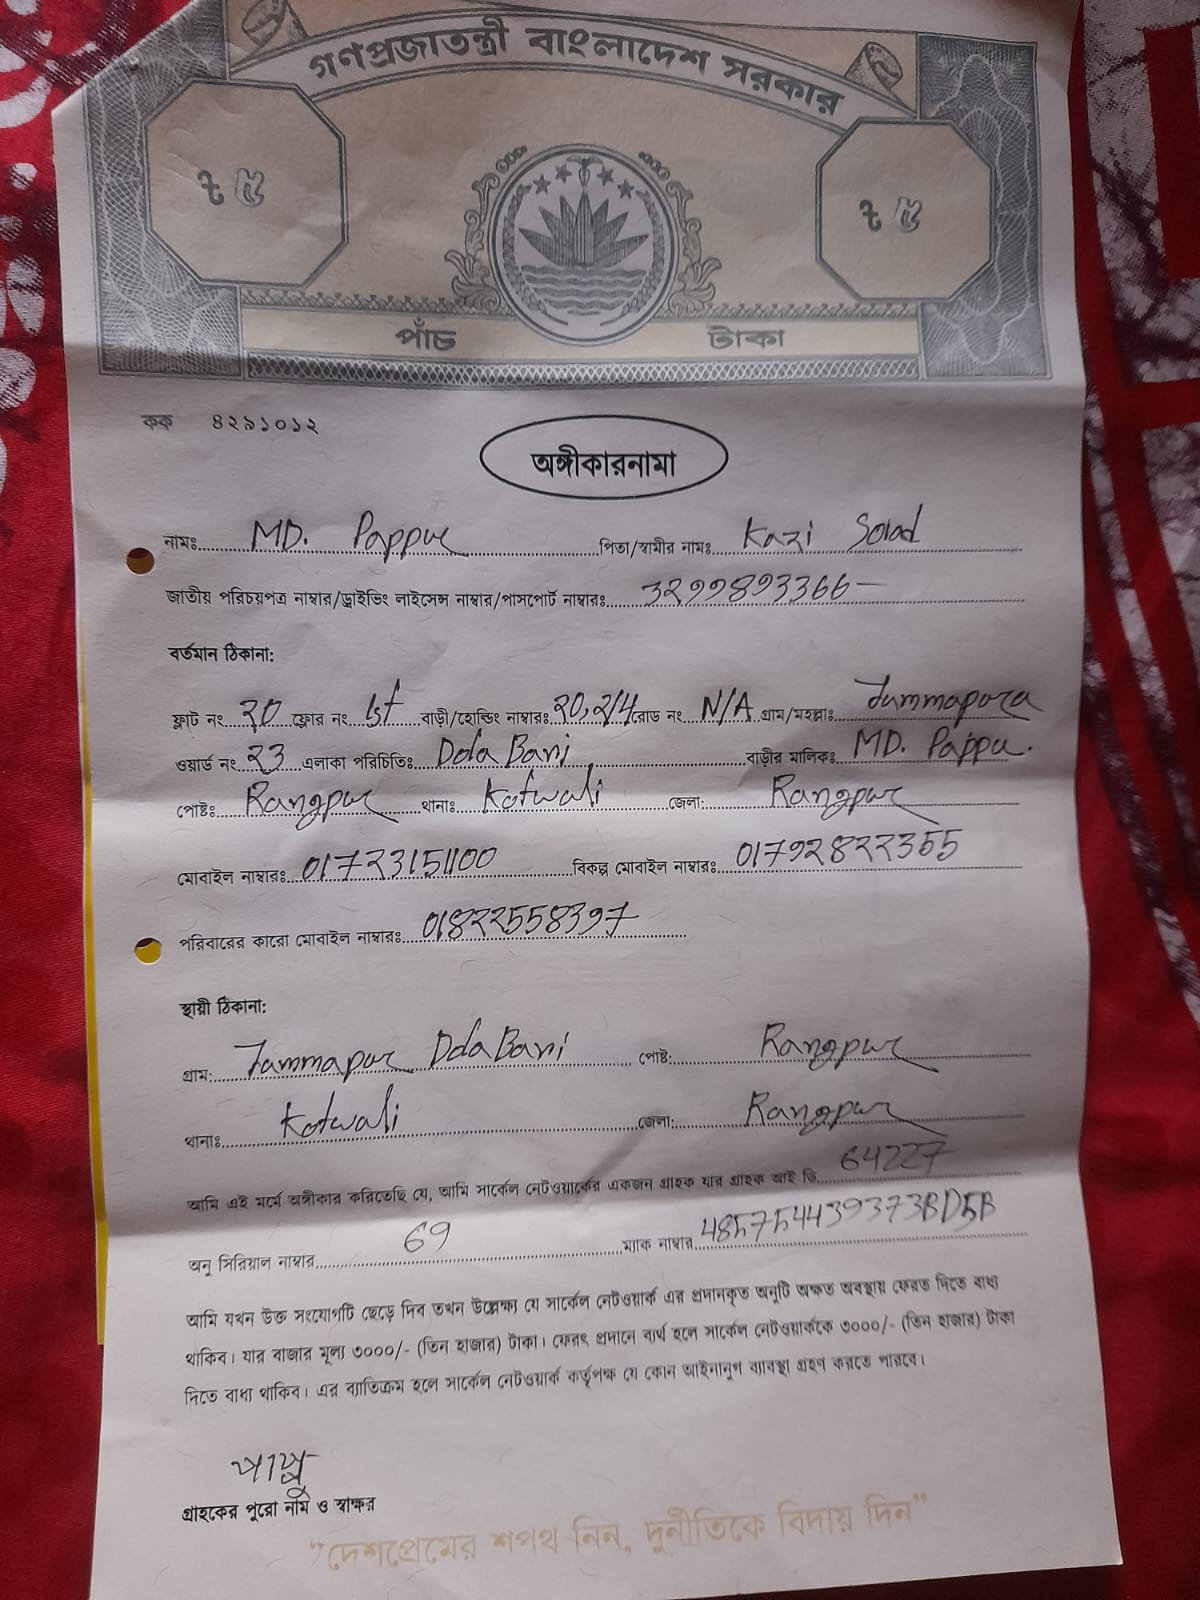 গণপ্রজাতন্ত্রী বাংলাদেশ সরকার
৳ ৫ ৳ ৫
পাঁচ টাকা
কক ৪২৯১০১২
অঙ্গীকারনামা
নামঃ MD. Pappu পিতা/স্বামীর নামঃ Kazi
জাতীয় পরিচয়পত্র নাম্বার/ড্রাইভিং লাইসেন্স নাম্বার/পাসপোর্ট নাম্বারঃ 3299893366
বর্তমান ঠিকানা:
ফ্লাট নং 20 ফ্লোর নং 1st বাড়ী/হোল্ডিং নাম্বারঃ 20,2/4 রোড নং N/A গ্রাম/মহল্লাঃ Jummapara
ওয়ার্ড নং 23 এলাকা পরিচিতিঃ Dola Bari বাড়ীর মালিকঃ MD. Pappu.
পোষ্টঃ Rangpur থানাঃ Kotwali জেলা: Rangpur
মোবাইল নাম্বারঃ 01723151100 বিকল্প মোবাইল নাম্বারঃ 01792822355
পরিবারের কারো মোবাইল নাম্বারঃ 01822558397
স্থায়ী ঠিকানা:
গ্রাম: Jummapur Dola Bari পোষ্ট: Rangpur
থানাঃ Kotwali জেলা: Rangpur
আমি এই মর্মে অঙ্গীকার করিতেছি যে, আমি সার্কেল নেটওয়ার্কের একজন গ্রাহক যার গ্রাহক আই ডি 64227
অনু সিরিয়াল নাম্বার 69 ম্যাক নাম্বার 485754439373BD5B
আমি যখন উক্ত সংযোগটি ছেড়ে দিব তখন উল্লেক্ষ্য যে সার্কেল নেটওয়ার্ক এর প্রদানকৃত অনুটি অক্ষত অবস্থায় ফেরত দিতে বাধ্য
থাকিব। যার বাজার মূল্য ৩০০০/- (তিন হাজার) টাকা। ফেরৎ প্রদানে ব্যর্থ হলে সার্কেল নেটওয়ার্ককে ৩০০০/- (তিন হাজার) টাকা
দিতে বাধ্য থাকিব। এর ব্যাতিক্রম হলে সার্কেল নেটওয়ার্ক কর্তৃপক্ষ যে কোন আইনানুগ ব্যাবস্থা গ্রহণ করতে পারবে।
পাপ্পু
গ্রাহকের পুরো নাম ও স্বাক্ষর
“দেশপ্রেমের শপথ নিন, দুর্নীতিকে বিদায় দিন”